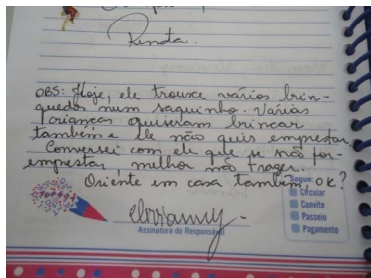 Renata.
OBS: Hoje, ele trouxe vários brin-
quedos num saquinho. Várias
crianças quiseram brincar
também e ele não quis emprestar.
Conversei com ele que se não for
emprestar, melhor não trazer.
Oriente em casa também, OK?
Assinatura do Responsável
Segue:
Circular
Convite
Passeio
Pagamento